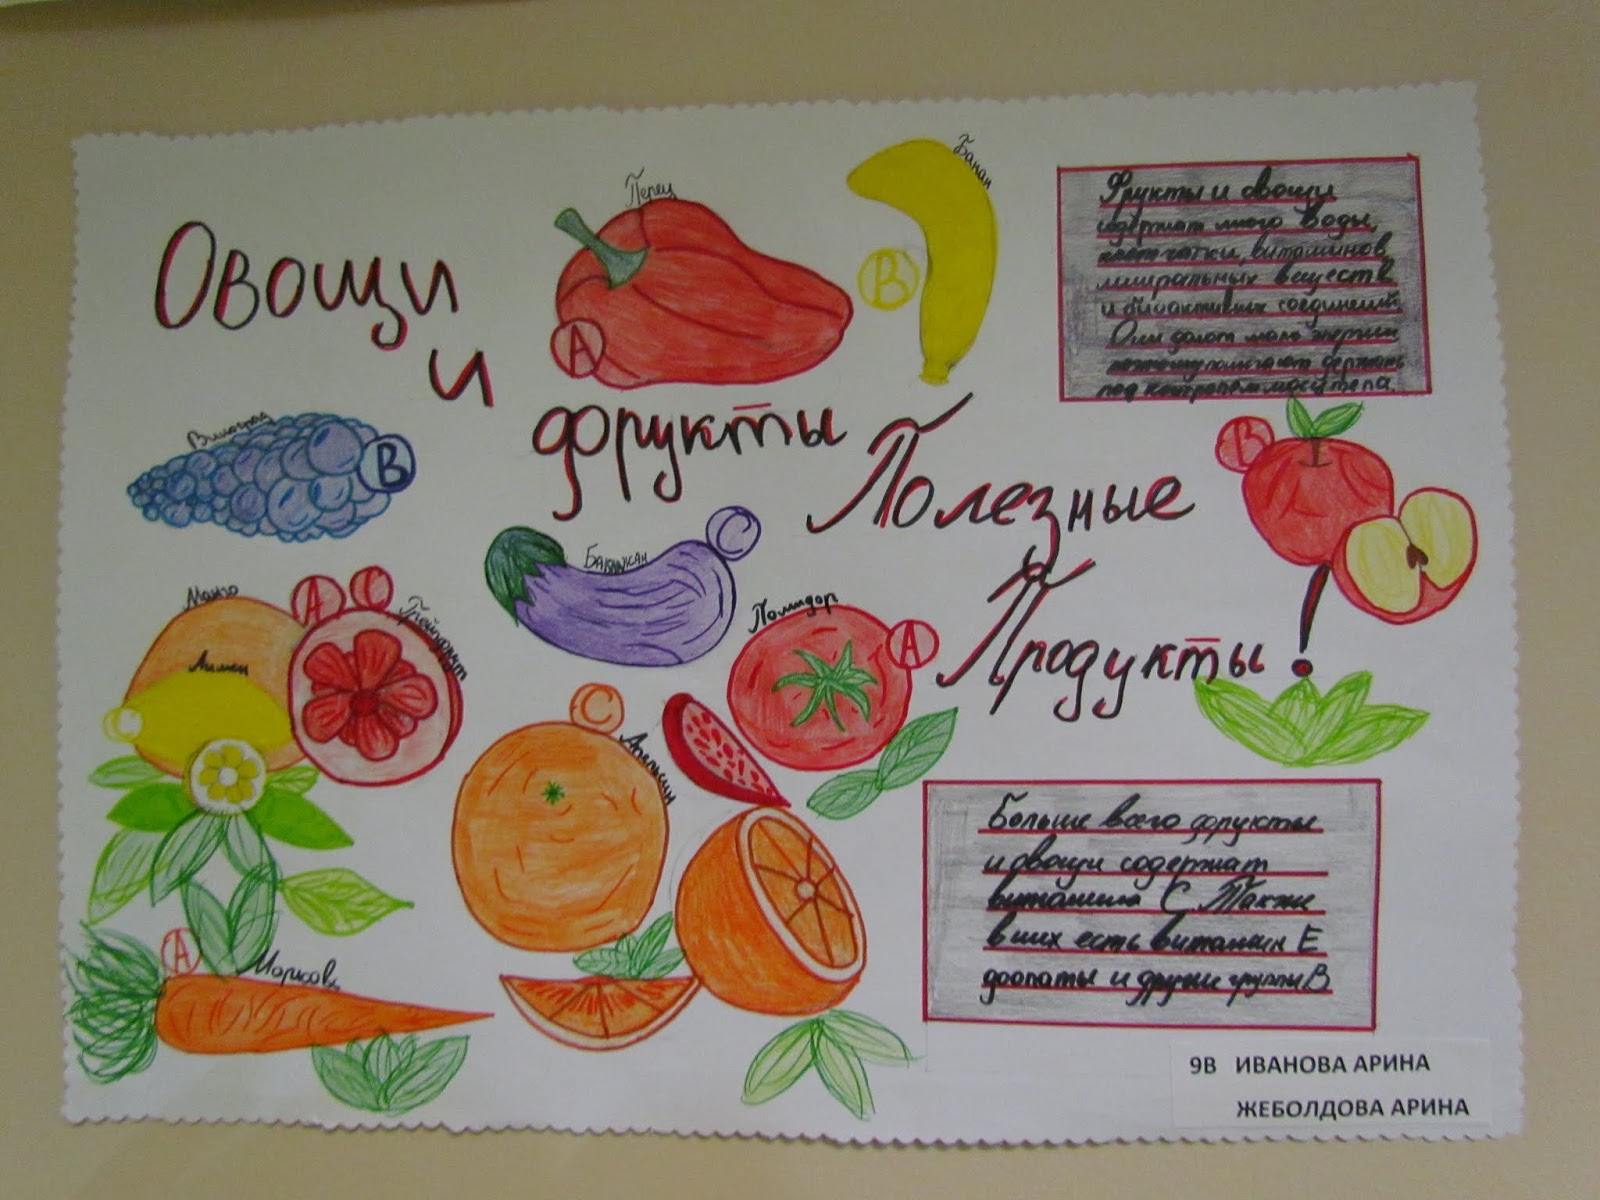 Овощи
и
фрукты
Полезные
Продукты!
Перец
А
Банан
В
Фрукты и овощи
содержат много воды,
клетчатки, витаминов,
миральных веществ
и биоактивных соединений.
Они долот мало энергии
поэтому помогают держать
под контролем массу тела.
Виноград
В
В
Баклажан
С
Манго
А
С
Грейпфрукт
Лимон
С
Помидор
А
С
Апельсин
А
Морковь
Больше всего фрукты
и овощи содержат
витамина С. Также
в них есть витамин Е
доопаты и другие группы В
9В ИВАНОВА АРИНА
ЖЕБОЛДОВА АРИНА